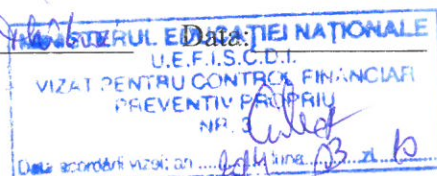 Data:
MINISTERUL EDUCAŢIEI NAŢIONALE
U.E.F.I.S.C.D.I.
VIZAT PENTRU CONTROL FINANCIAR
PREVENTIV PROPRIU
NR. 3
Data acordării vizei: an 2014 luna 03 zi 10